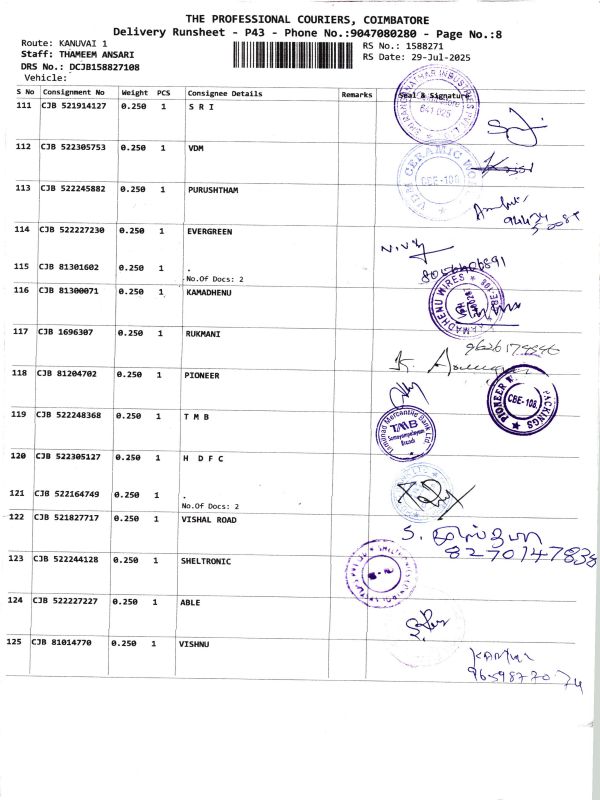 THE PROFESSIONAL COURIERS, COIMBATORE
Delivery Runsheet - P43 - Phone No.:9047080280 - Page No.:8
Route: KANUVAI 1
RS No.: 1588271
Staff: THAMEEM ANSARI
RS Date: 29-Jul-2025
DRS No.: DCJB158827108
Vehicle:
S No Consignment No Weight PCS Consignee Details Remarks Seal & Signature
111 CJB 521914127 0.250 1 S R I
641 025
112 CJB 522305753 0.250 1 VDM
CBE-108
113 CJB 522245882 0.250 1 PURUSHTHAM
114 CJB 522227230 0.250 1 EVERGREEN
115 CJB 81301602 0.250 1 .
No.Of Docs: 2
116 CJB 81300071 0.250 1 KAMADHENU
KAMADHENU WIRES
117 CJB 1696307 0.250 1 RUKMANI
118 CJB 81204702 0.250 1 PIONEER
PIONEER PACKINGS
CBE-108.
119 CJB 522248368 0.250 1 T M B
Tamilnad Mercantile Bank Ltd.
TMB
Branch
120 CJB 522305127 0.250 1 H D F C
121 CJB 522164749 0.250 1 .
No.Of Docs: 2
122 CJB 521827717 0.250 1 VISHAL ROAD
8270147838
123 CJB 522244128 0.250 1 SHELTRONIC
124 CJB 522227227 0.250 1 ABLE
125 CJB 81014770 0.250 1 VISHNU
9659877074